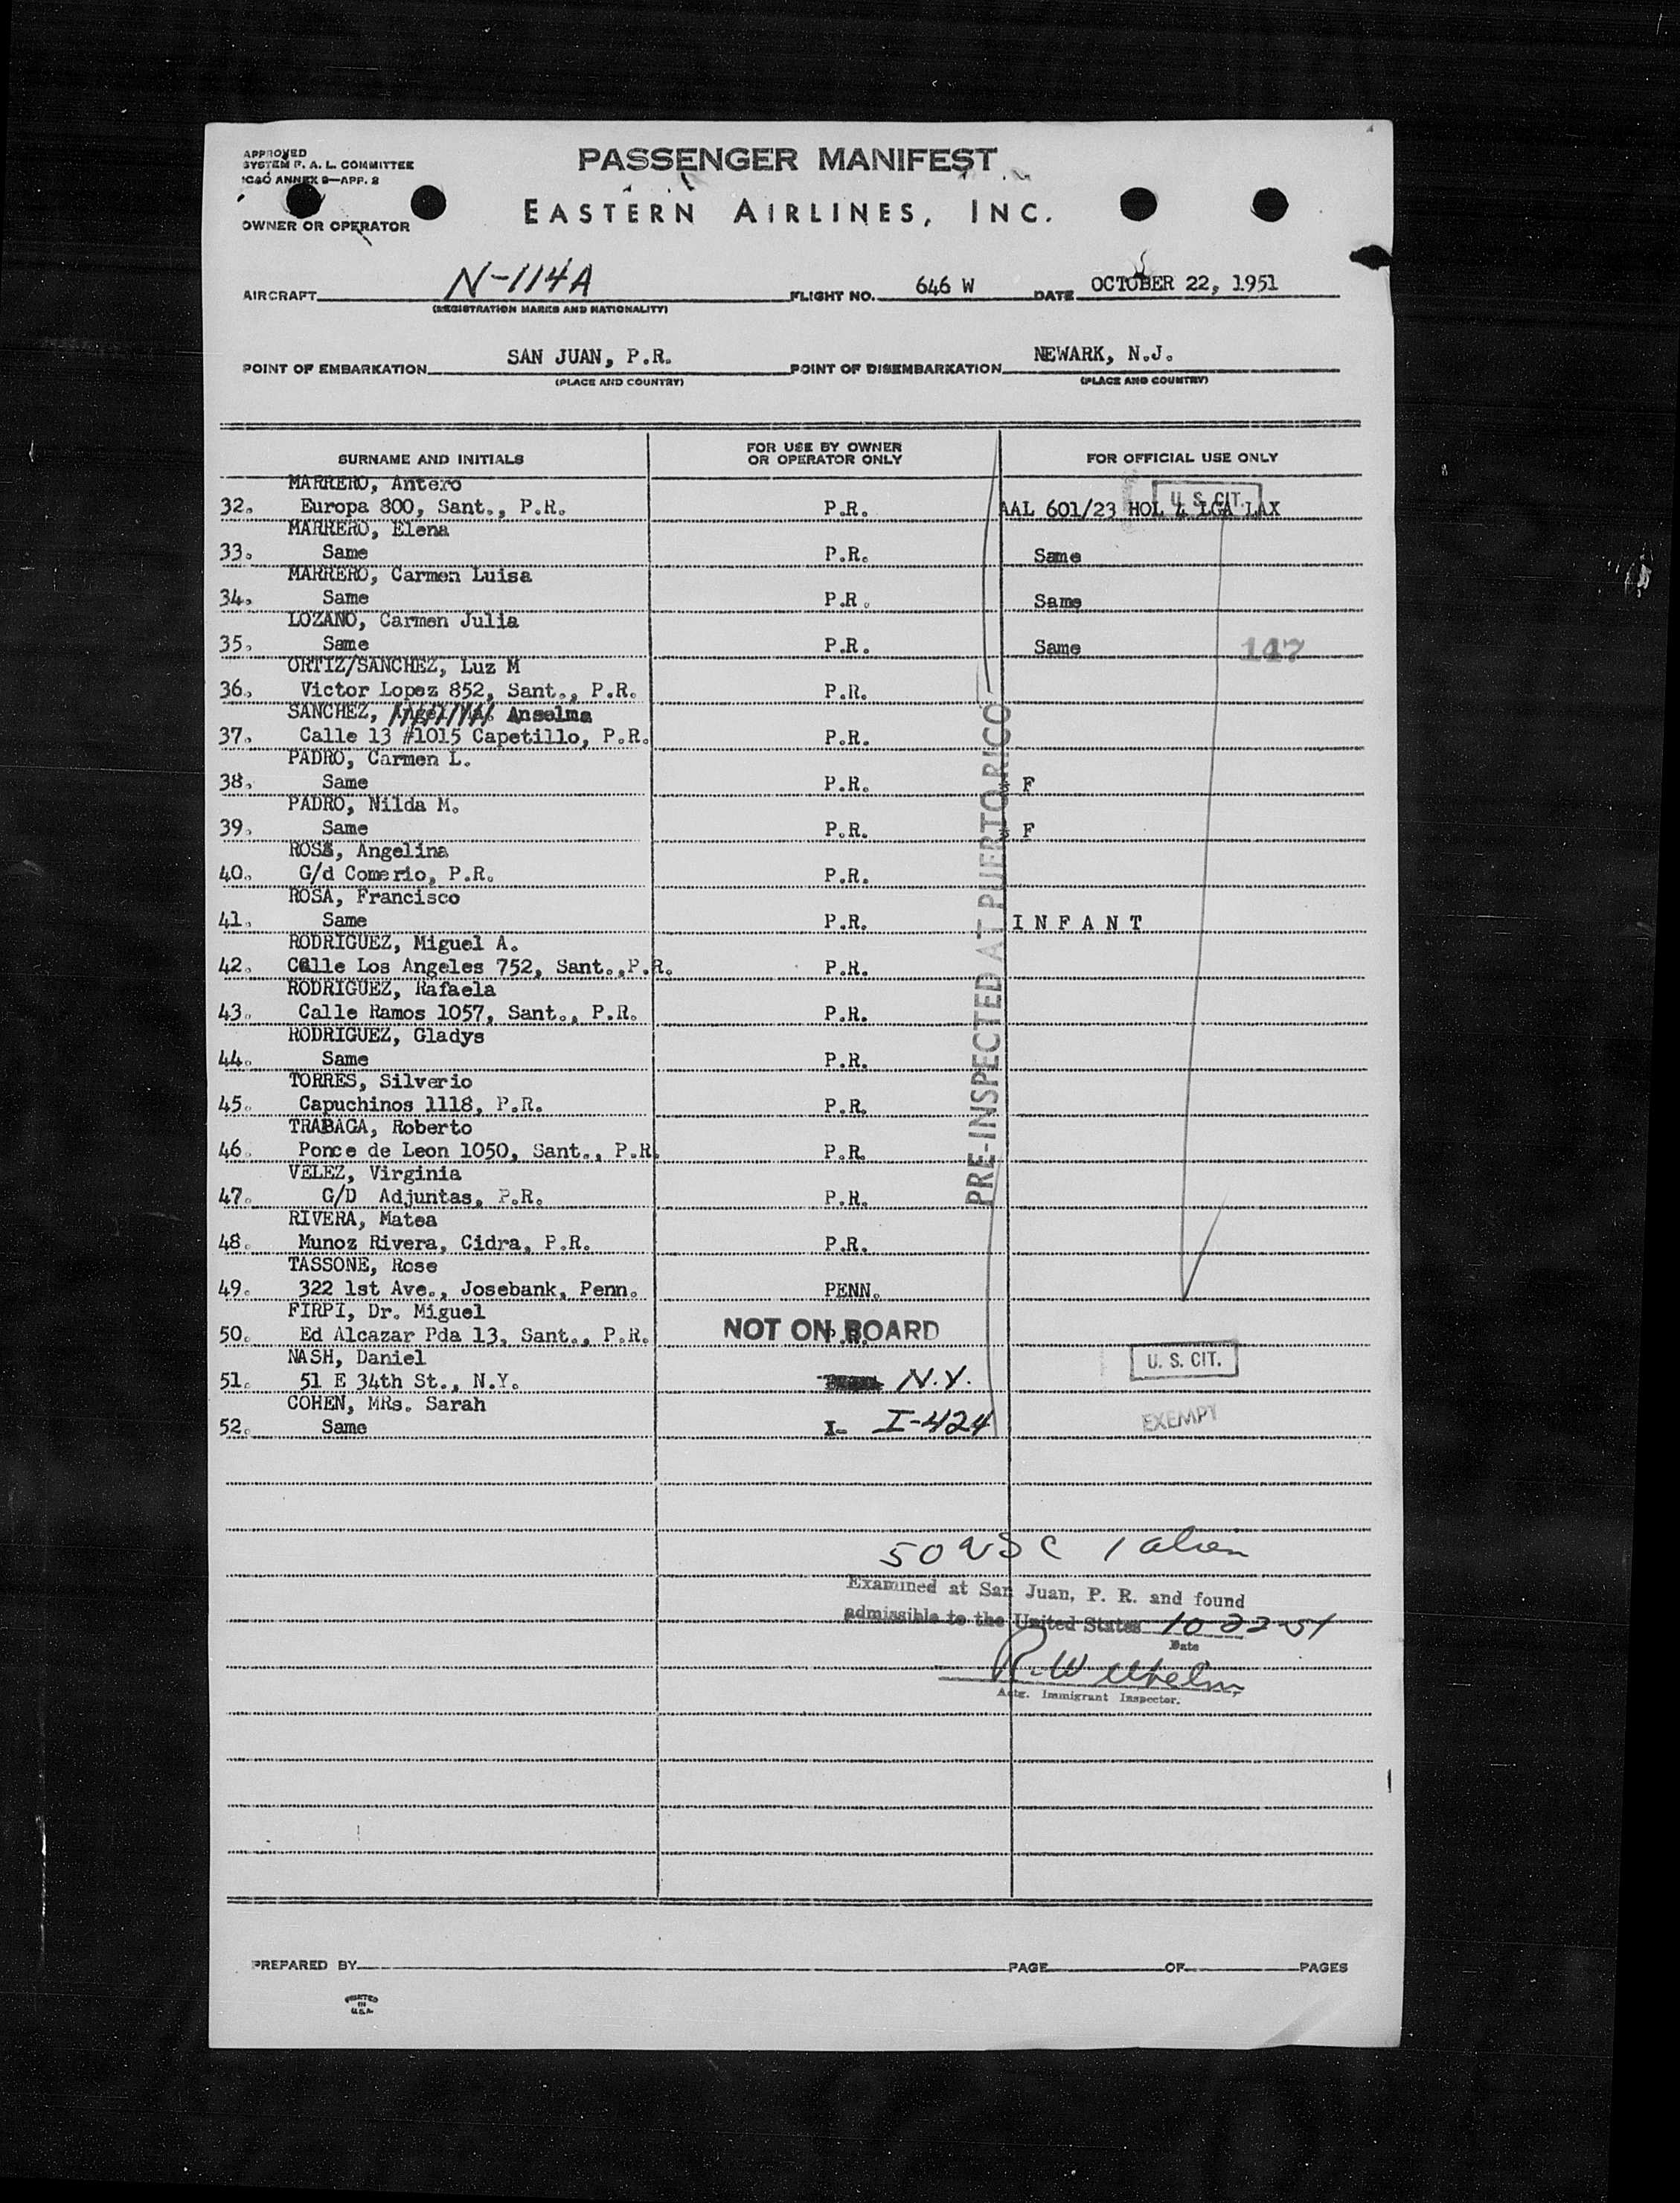 APPROVED
SYSTEM F. A. L. COMMITTEE
ICAO ANNEX 9—APP. 2
PASSENGER MANIFEST
EASTERN AIRLINES, INC.
OWNER OR OPERATOR
AIRCRAFT N-114A FLIGHT NO. 646 W DATE OCTOBER 22, 1951
(REGISTRATION MARKS AND NATIONALITY)
POINT OF EMBARKATION SAN JUAN, P.R. POINT OF DISEMBARKATION NEWARK, N.J.
(PLACE AND COUNTRY) (PLACE AND COUNTRY)
SURNAME AND INITIALS FOR USE BY OWNER OR OPERATOR ONLY FOR OFFICIAL USE ONLY
MARRERO, Antero
32. Europa 800, Sant., P.R. P.R. AAL 601/23 HOL 4 LGA LAX
U. S. CIT.
MARRERO, Elena
33. Same P.R. Same
MARRERO, Carmen Luisa
34. Same P.R. Same
LOZANO, Carmen Julia
35. Same P.R. Same 147
ORTIZ/SANCHEZ, Luz M
36. Victor Lopez 852, Sant., P.R. P.R.
SANCHEZ, Anselma
37. Calle 13 #1015 Capetillo, P.R. P.R.
PADRO, Carmen L.
38. Same P.R. F
PADRO, Nilda M.
39. Same P.R. F
ROSA, Angelina
40. G/d Comerio, P.R. P.R.
ROSA, Francisco
41. Same P.R. INFANT
RODRIGUEZ, Miguel A.
42. Calle Los Angeles 752, Sant.,P.R. P.R.
RODRIGUEZ, Rafaela
43. Calle Ramos 1057, Sant., P.R. P.R.
RODRIGUEZ, Gladys
44. Same P.R.
TORRES, Silverio
45. Capuchinos 1118, P.R. P.R.
TRABAGA, Roberto
46. Ponce de Leon 1050, Sant., P.R. P.R.
VELEZ, Virginia
47. G/D Adjuntas, P.R. P.R.
RIVERA, Matea
48. Munoz Rivera, Cidra, P.R. P.R.
TASSONE, Rose
49. 322 1st Ave., Josebank, Penn. PENN.
FIRPI, Dr. Miguel
50. Ed Alcazar Pda 13, Sant., P.R. P.R. NOT ON BOARD
NASH, Daniel
51. 51 E 34th St., N.Y. N.Y. U. S. CIT.
COHEN, MRs. Sarah
52. Same I- I-424 EXEMPT
PRE-INSPECTED AT PUERTO RICO
50 USC 1 alien
Examined at San Juan, P. R. and found
admissible to the United States 10-22-51
Date
Actg. Immigrant Inspector.
PREPARED BY PAGE OF PAGES
PRINTED
IN
U.S.A.